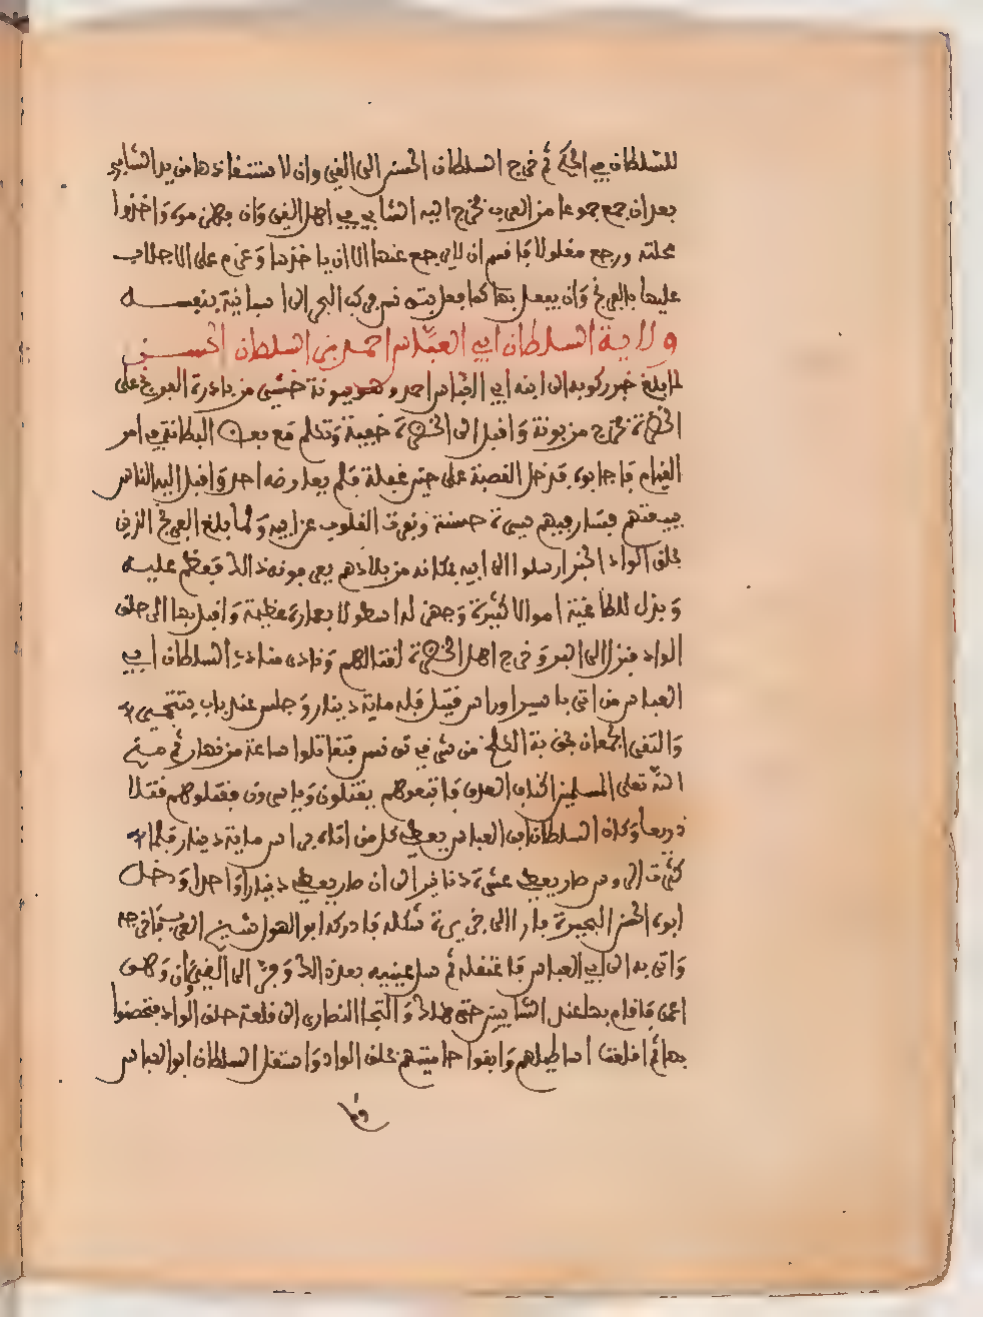 للسلطان في الحكم ثم خرج السلطان الحسن الى القيروان لاستنفاذها من يد الشابي
بعد ان جمع جموعا من العرب فخرج اليه الشابي في اهل القيروان فهزموه واخذوا
محلته ورجع مغلولا فاقسم ان لا يرجع عنها الا ان ياخذها وعزم على الاجلاب
عليها بالافرنج وان يفعل بها كما فعل بتونس فركب البحر الى اسبانية بنفسه
ولاية السلطان ابي العباس احمد بن السلطان الحسن
لما بلغ خبر ركوبه الى ابنه ابي العباس احمد وهو ببونة خشي من بادرة الفرنج على
الخضرة فخرج من بونة واقبل الى الخضرة خفية وتكلم مع بعض البطانة في امر
القيام فاجابوه فدخل القصبة على حين غفلة فلم يعارضه احد واقبل اليه الناس
ببيعتهم فسار فيهم سيرة حسنة ونفرت القلوب عن ابيه ولما بلغ الفرنج الذين
بحلق الواد الخبر ارسلوا الى ابيه بمكانه من بلادهم يعرفونه ذالك فعظم عليه
وبذل للطاغية اموالا كثيرة وجهز له اسطولا بعمارة عظيمة واقبل بها الى حلق
الواد فنزل الى البر وخرج اهل الخضرة لقتالهم ونادى منادي السلطان ابي
العباس من اتى باسير او راس قتيل فله ماية دينار وجلس عند باب
والتقى الجمعان بخربة الكلخ من شرقي تونس فتقاتلوا ساعة من نهار ثم منح
الله تعلى المسلمين اكتاف العدو فاتبعوهم يقتلون وياسرون فقتلوهم قتلا
ذريعا وكان السلطان ابي العباس يعطي كل من اتاه براس ماية دينار فلما
كثرت الروس صار يعطي عشرة دنانير الى ان صار يعطي دينارا واحدا ودخل
ابوه الحسن البحيرة فارا الى جزيرة شكله فادركه ابو الهول شيخ العرب فاخرجه
واتى به الى ابي العباس فاعتقله ثم سمل عينيه بعد ذالك وفر الى القيروان وهو
اعمى فاقام بها عند الشابيين حتى هلك والتجا النصارى الى قلعة حلق الواد فتحصنوا
بها ثم اقلعت اساطيلهم وابقوا حاميتهم بحلق الواد واستقل السلطان ابو العباس